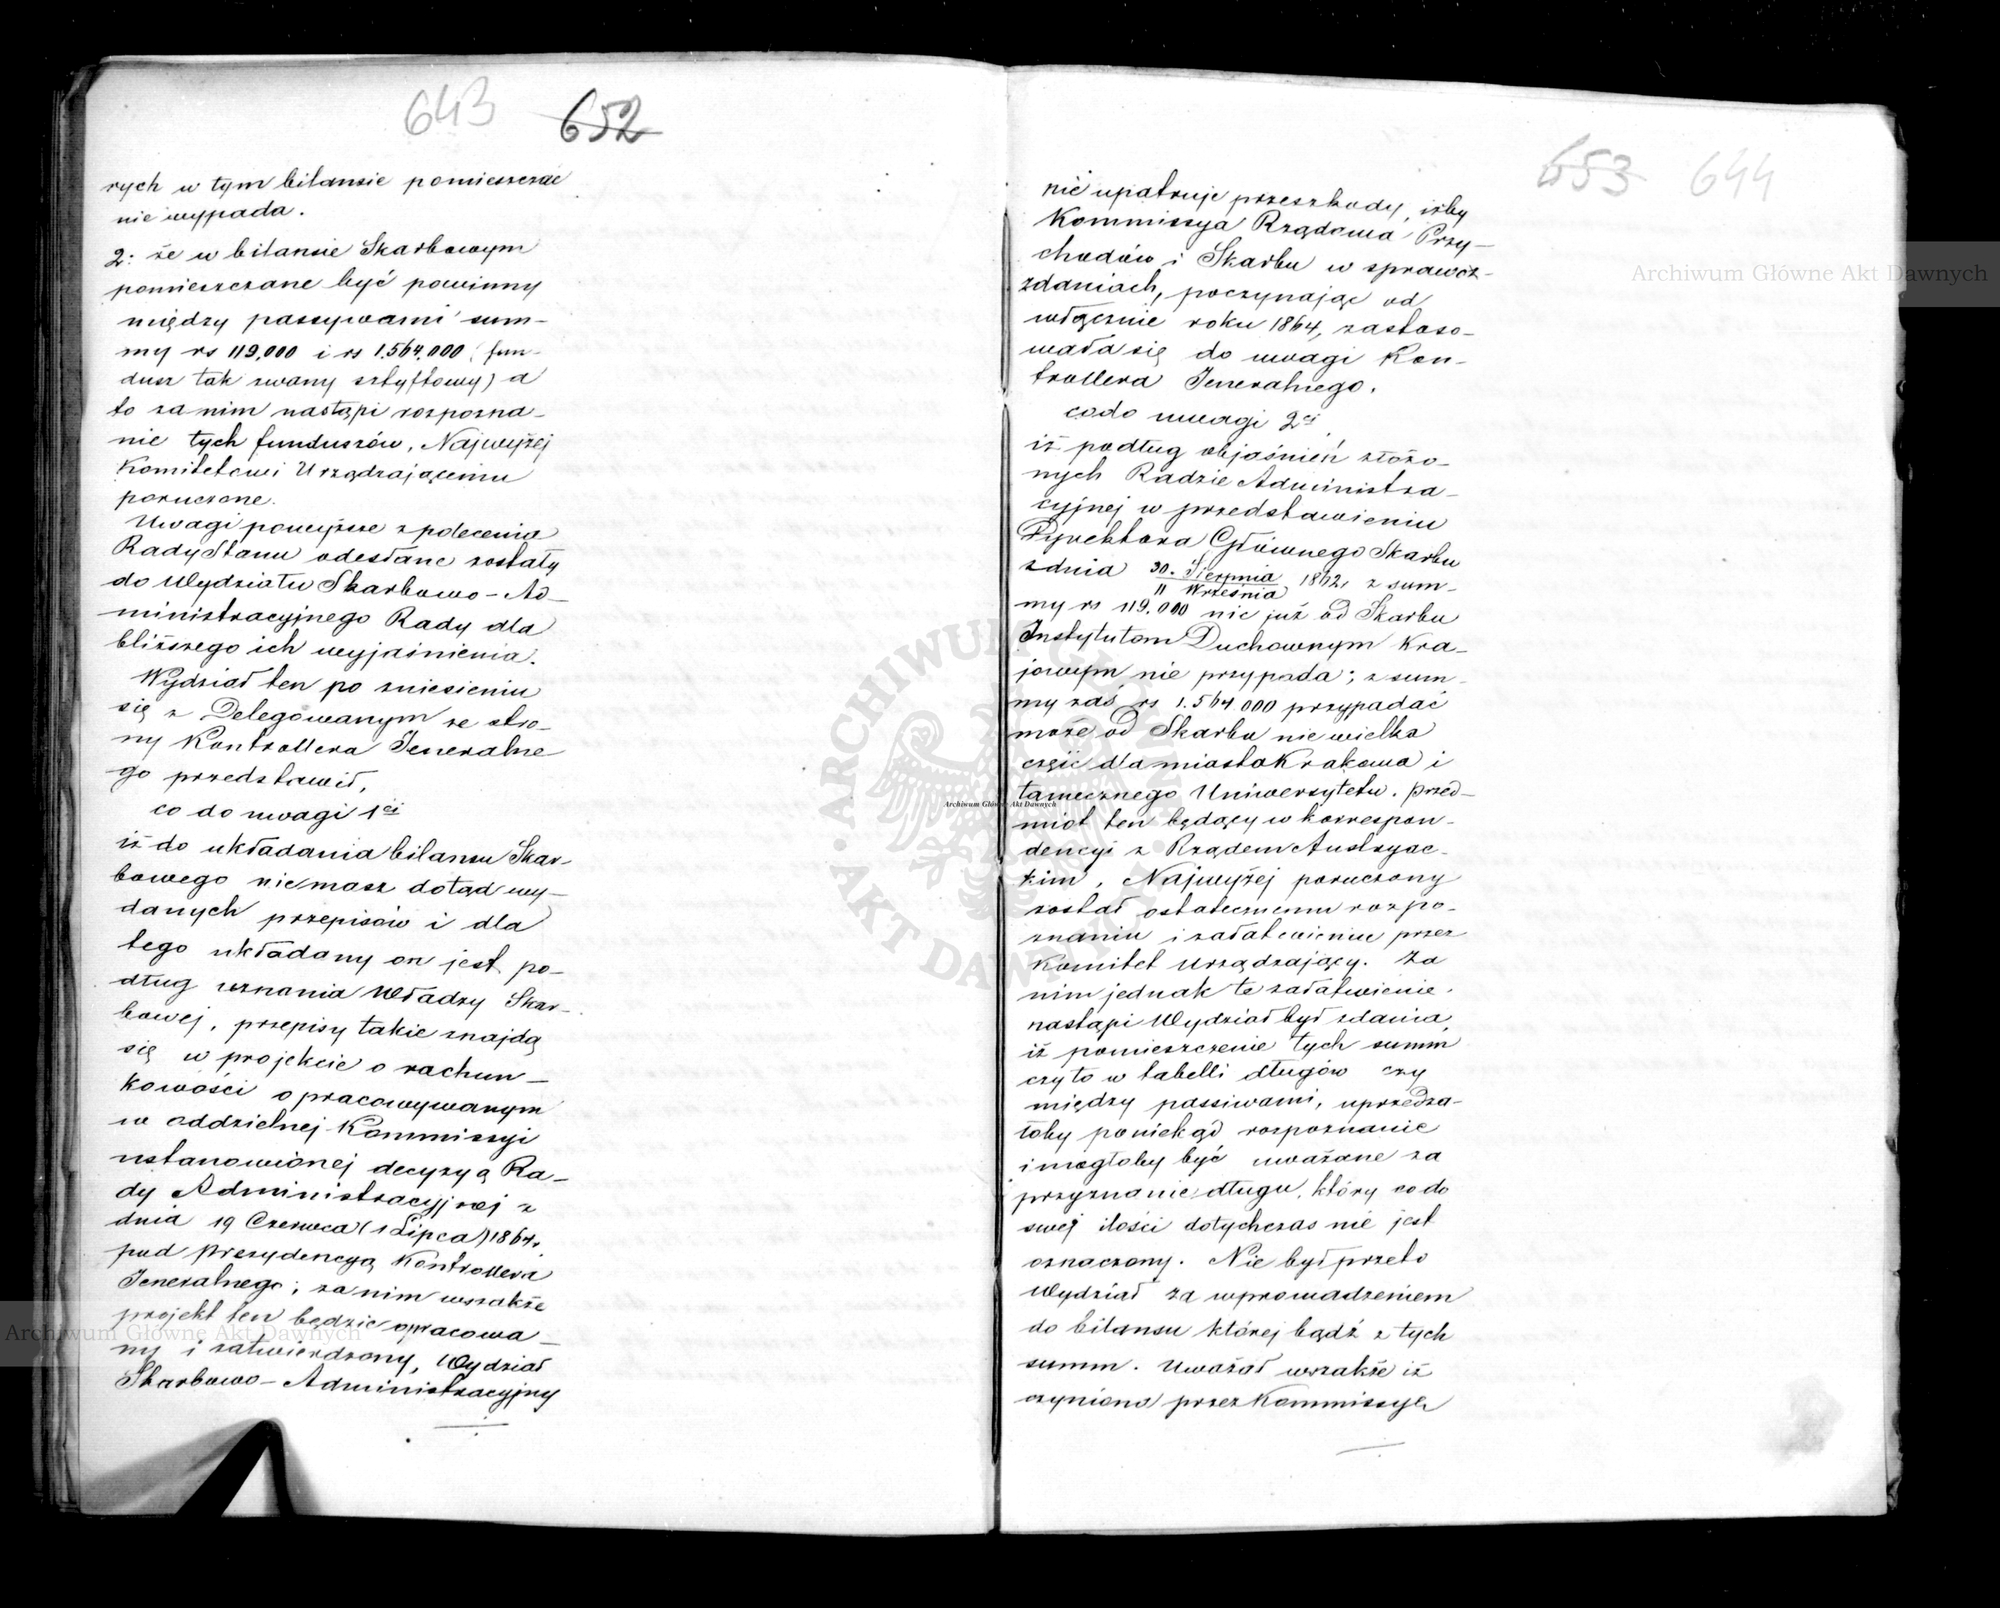 643 652
rych w tym bilansie pomieszczać
nie wypada.
2: że w bilansie Skarbowym
pomieszczone być powinny
między passywami sum-
my rs 119,000 i rs 1.564,000 (fun-
dusz tak zwany sztyftowy) a
to zanim nastąpi rozpozna-
nie tych funduszów, Najwyżej
Komitetowi Urządzającemu
poruczone.
Uwagi powyższe z polecenia
Rady Stanu odesłane zostały
do Wydziału Skarbowo-Ad-
ministracyjnego Rady dla
bliższego ich wyjaśnienia.
Wydział ten po zniesieniu
się z Delegowanym ze stro-
ny Kontrollera Jeneralne-
go przedstawił,
co do uwagi 1ej
iż do układania bilansu Skar-
bowego niemasz dotąd wy-
danych przepisów i dla
tego układany on jest po-
dług uznania Władzy Skar-
bowej, przepisy takie znajdą
się w projekcie o rachun-
kowości opracowywanym
w oddzielnej Kommissyi
ustanowionej decyzyą Ra-
dy Administracyjnej z
dnia 19 Czerwca (1 Lipca) 1864r.
pod prezydencyą Kontrollera
Jeneralnego; zanim wszakże
projekt ten będzie opracowa-
ny i zatwierdzony, Wydział
Skarbowo-Administracyjny
653 644
nie upatruje przeszkody, iżby
Kommissya Rządowa Przy-
chodów i Skarbu w sprawoz-
zdaniach, poczynając od
włącznie roku 1864, zastoso-
wała się do uwagi Kon-
trollera Jeneralnego.
co do uwagi 2ej
iż podług objaśnień złożo-
nych Radzie Administra-
cyjnej w przedstawieniu
Dyrektora Głównego Skarbu
z dnia 30. Sierpnia / 11 Września 1862r. z sum-
my rs 119.000 nic już od Skarbu
Instytutom Duchownym Kra-
jowym nie przypada; z sum-
my zaś rs 1.564.000 przypadać
może od Skarbu nie wielka
część dla miasta Krakowa i
tamecznego Uniwersytetu. Przed-
miot ten będący w korrespon-
dencyi z Rządem Austryac-
kim, Najwyżej poruczony
został ostatecznemu rozpo-
znaniu i załatwieniu przez
Komitet Urządzający. Za
nim jednak te załatwienie
nastąpi Wydział był zdania,
iż pomieszczenie tych summ
czy to w tabelli długów czy
między passiwami, uprzedza-
łoby poniekąd rozpoznanie
i mogłoby być uważane za
przyznanie długu, który co do
swej ilości dotychczas nie jest
oznaczony. Nie był przeto
Wydział za wprowadzeniem
do bilansu której bądź z tych
summ. Uważał wszakże iż
czyniona przez Kommissyę
Archiwum Główne Akt Dawnych
Archiwum Główne Akt Dawnych
Archiwum Główne Akt Dawnych